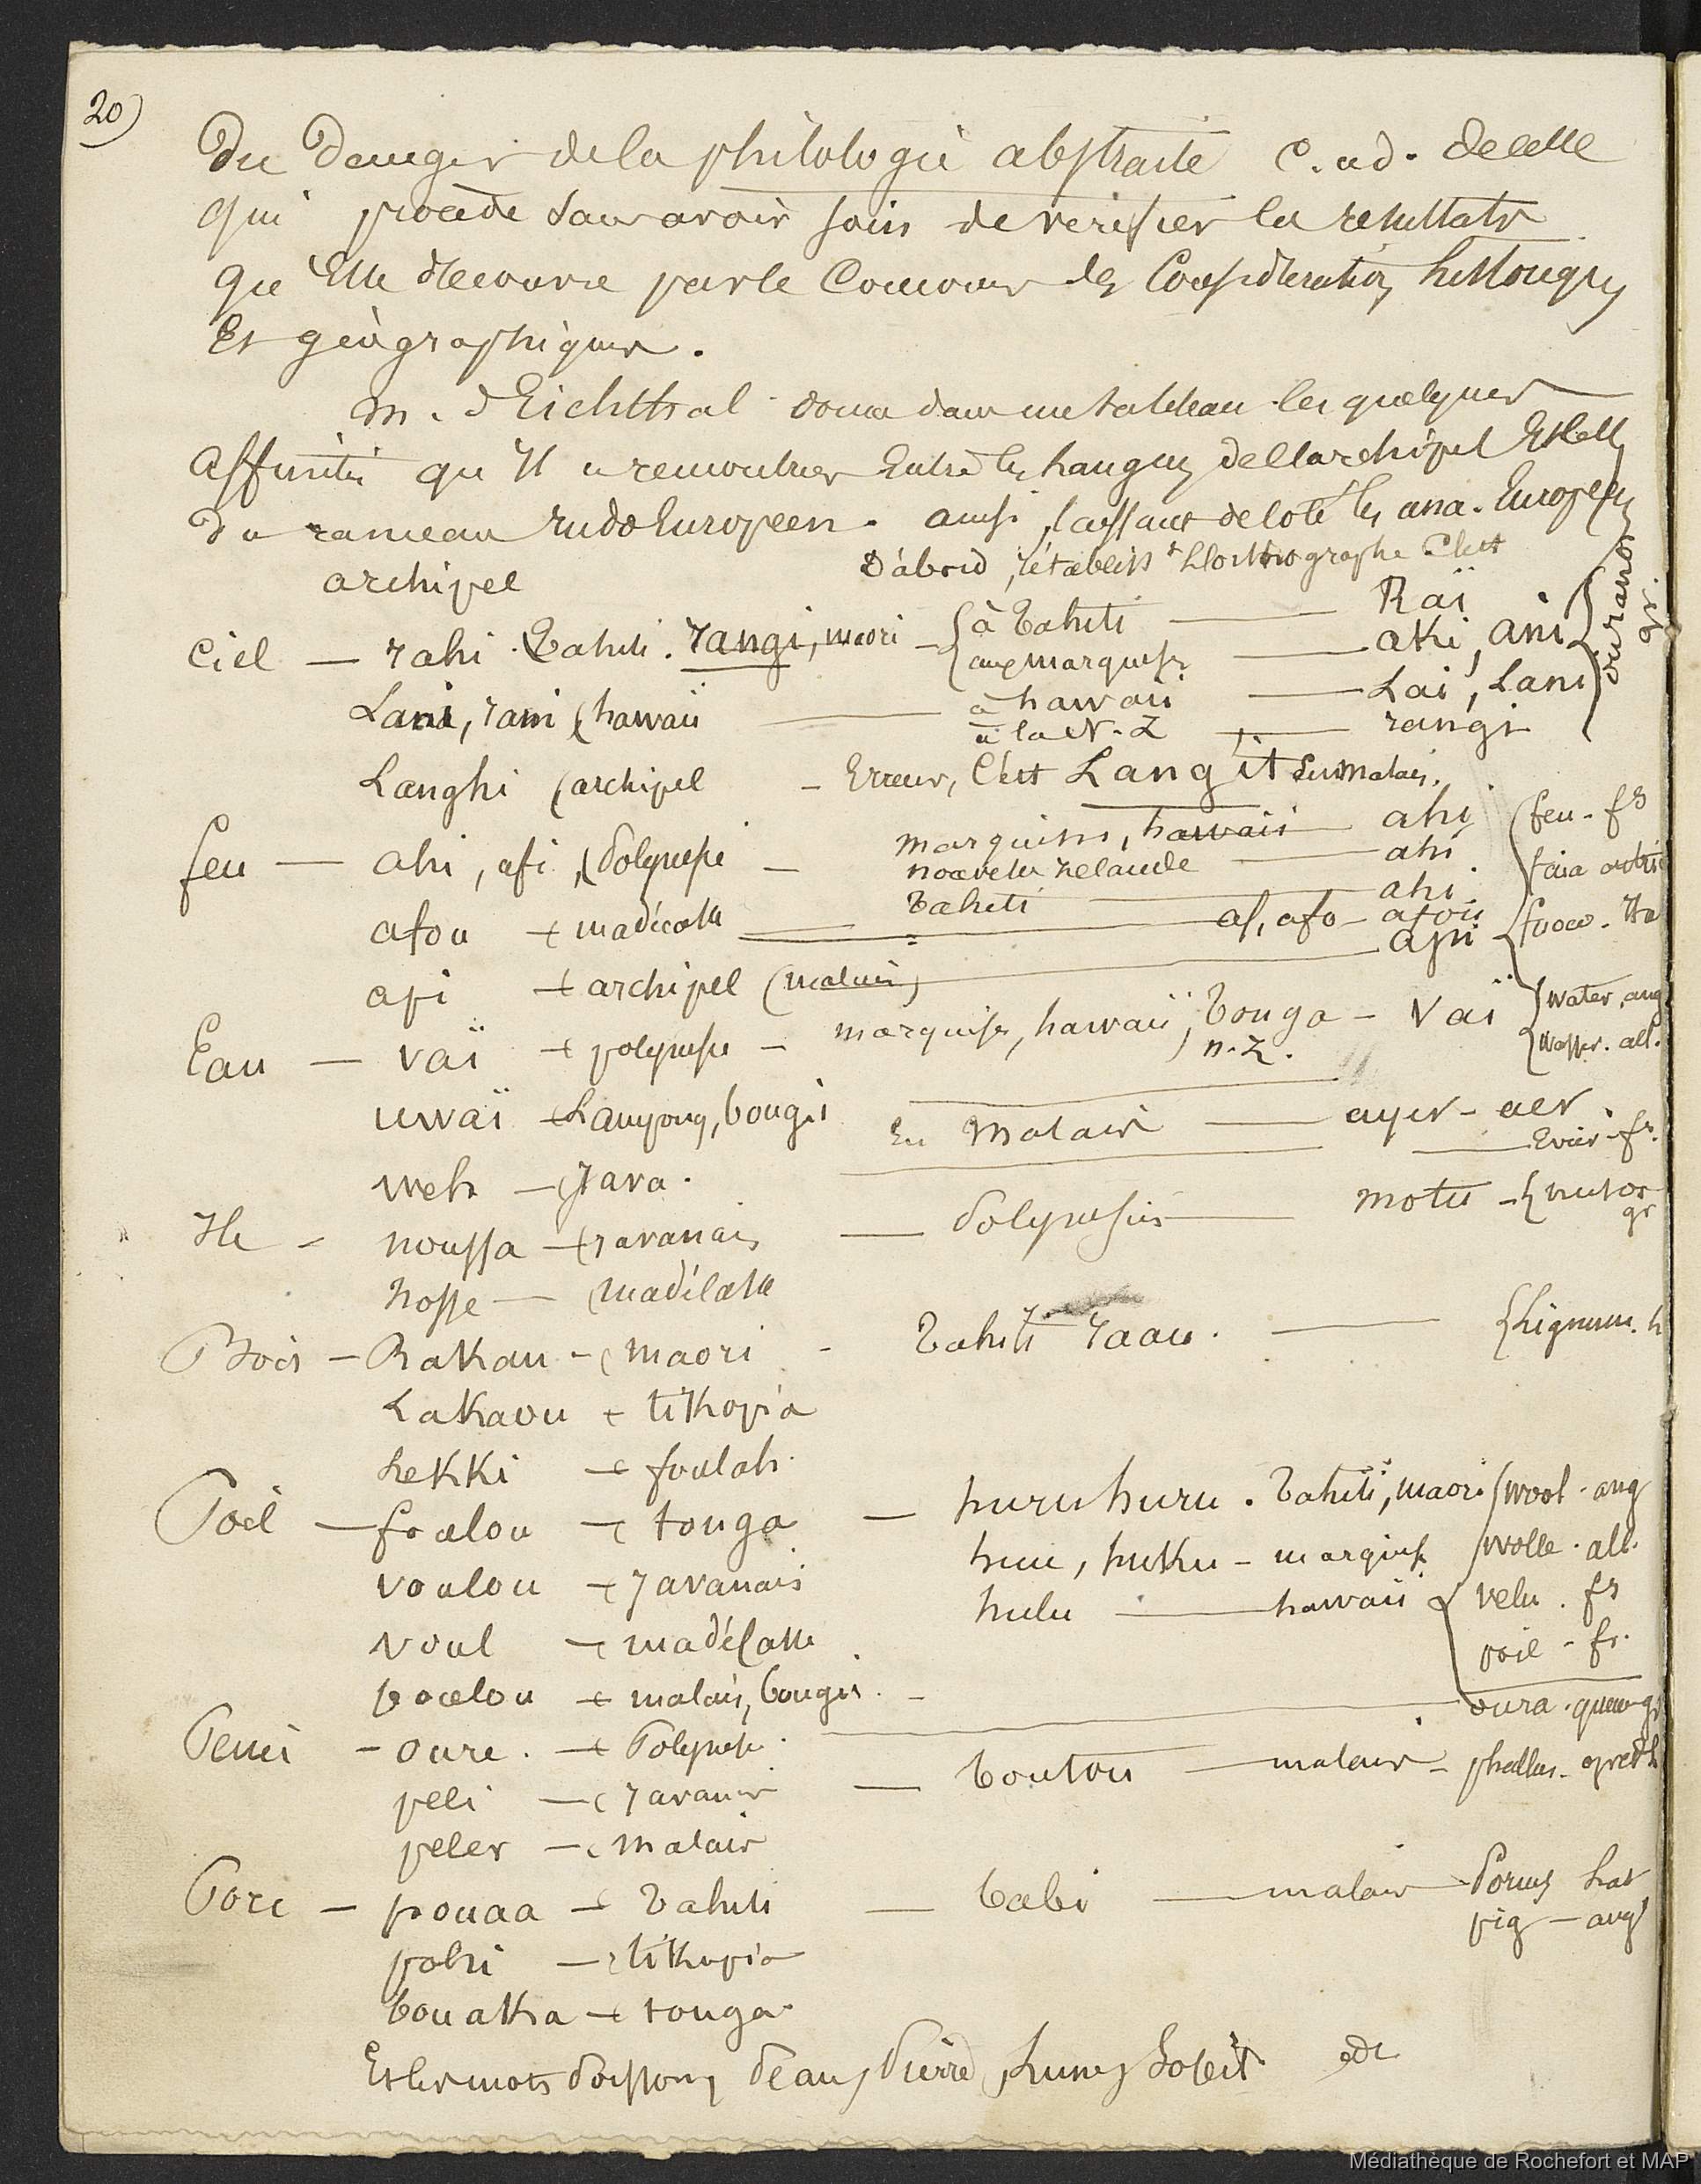 20)
Du Danger de la philologie abstraite c. ad. de celle
qui procède sans avoir soin de verifier les resultats
que Elle decouvre par le Concours des Considerations historiques
Et géographiques.
M. d'Eichthal donne dans un tableau les quelques
affinités qu'Il a rencontrées Entre les langues de l'archipel Et celles
du rameau IndoEuropeen. ainsi, laissant de coté les ana. Européens
D'abord, rétablissons l'orthographe C'est
archipel
Ciel — rahi (Tahiti. rangi, maori — { à Tahiti — Raï
aux marquises — aki, ani } ouranos gr.
Lani, rani (hawaii — à hawaii — Lai, Lani
à la N-Z — rangi
Langhi (archipel — Erreur, C'est Langit en malais.
feu — ahi, afi, (Polynésie — marquises, hawaii — ahi { feu - fs
nouvelle zelande — ahi
Tahiti — ahi
afou — (madécasse — af, afo — afou { fuoco. Ita
api — (archipel (malais) — api
Eau — vaï — (polynésie — marquises, hawaii, Tonga — vaï { water, ang
n-Z. { wasser. all.
uwaï — (Lampong, bougis En malais — ayer - aer
Evier - fr.
weh — (Java.
Ile — noussa — (javanais — Polynésien — motu — { nesos gr
nosse — (madécasse
Bois — Rakau — (maori — Tahiti raau. — { Lignum. l
Lakaou — (tikopia
Lekki — (foulah.
Poil — foulou — (tonga — huruhuru. Tahiti, maori { wool. ang
huu, huku — marquises { wolle. all.
voulou — (javanais hulu — hawaii { velu. fs
voul — (madécasse poil - fr.
poulou — (malais, bougis. —
Penis — oure. — (Polynésie. — oura. queue gr
peli — (javanais — boutou — malais — phallus
peler — (malais
Porc — pouaa — (Tahiti — babi — malais — Porcus lat
pig — ang
pohi — (tikopia
bouaka — (tonga
Et les mots Poisson, Peau, Pierre, Lune, Soleil etc
Médiathèque de Rochefort et MAP